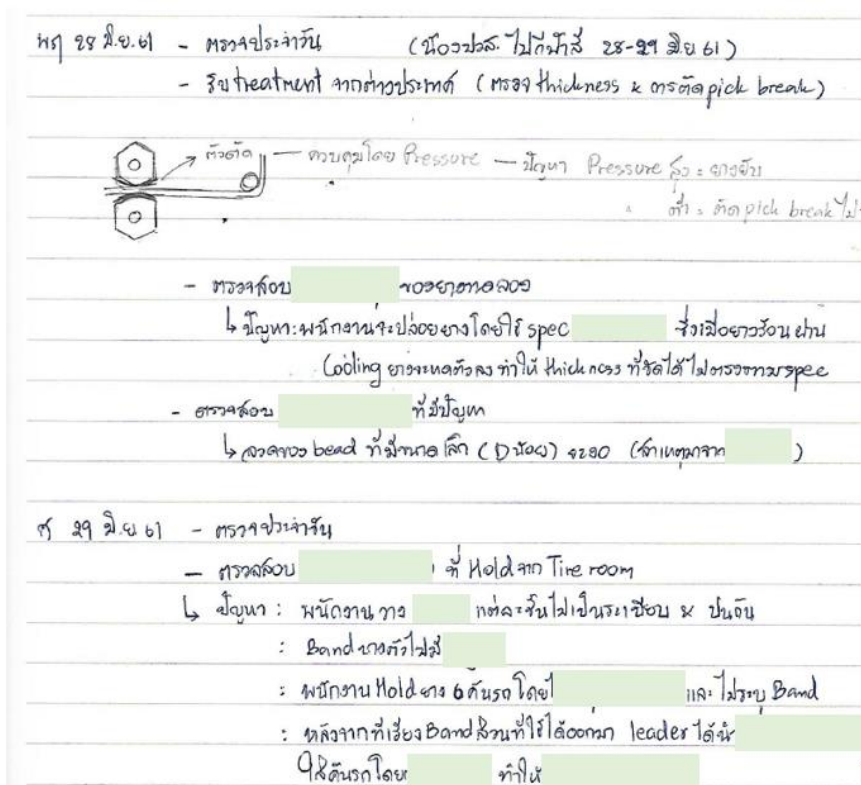 พฤ 28 มิ.ย. 61 - ตรวจประจำวัน (น้องปวส. ไปกีฬาสี 28-29 มิย 61)
- รับ treatment จากต่างประเทศ (ตรวจ thickness & การตัด pick break)
ตัวตัด — ควบคุมโดย Pressure — ปัญหา Pressure สูง = ยางยับ
ต่ำ = ตัด pick break ไม่
- ตรวจสอบ ของยางทดลอง
↳ ปัญหา: พนักงานจะปล่อยยางโดยใช้ spec ซึ่งเมื่อยางร้อนผ่าน
Cooling ยางจะหดตัวลง ทำให้ thickness ที่วัดได้ไม่ตรงตาม spec
- ตรวจสอบ ที่มีปัญหา
↳ ลวดของ bead ที่มีขนาดเล็ก (D น้อย) จะงอ (สาเหตุมาจาก )
ศ 29 มิ.ย 61 - ตรวจประจำวัน
- ตรวจสอบ ที่ Hold จาก Tire room
↳ ปัญหา : พนักงานวาง แต่ละชั้นไม่เป็นระเบียบ & ปนกัน
: Band บางตัวไม่มี
: พนักงาน Hold ยาง 6 คันรถ โดยไ และไม่ระบุ Band
: หลังจากที่เรียง Band ส่วนที่ใช้ได้ออกมา leader ได้นำ
ใส่คันรถโดย ทำให้